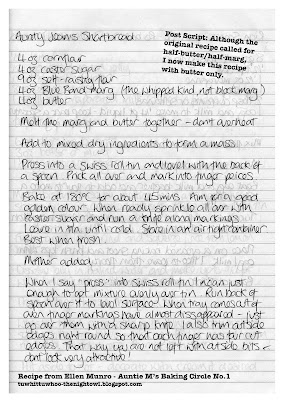 Aunty Jean's Shortbread
Post Script: Although the
original recipe called for
half-butter/half-marg,
I now make this recipe
with butter only.
4 oz cornflour
4 oz caster sugar
9 oz self-raising flour
4 oz Blue Band marg (the whipped kind, not block marg)
4 oz butter
Melt the marg and butter together - don't overheat
Add to mixed dry ingredients to form a mass.
Press into a swiss roll tin and level with the back of
a spoon. Prick all over and mark into finger pieces.
Bake at 150°C for about 45 mins. Aim for a good
golden colour. When ready sprinkle all over with
caster sugar and run a knife along markings.
Leave in tin until cold. Store in an airtight container.
Best when fresh.
Mother added:
When I say "press" into swiss roll tin I mean just
enough to get mixture evenly over tin. Run back of
spoon over it to level surface. When tray comes out of
oven finger markings have almost disappeared - just
go over them with a sharp knife. I also trim outside
edges right round so that each finger has four cut
edges. That way you are not left with outside bits -
don't look very attractive!
Recipe from Ellen Munro - Auntie M's Baking Circle No.1
tuwhittuwhoo-thenightowl.blogspot.com